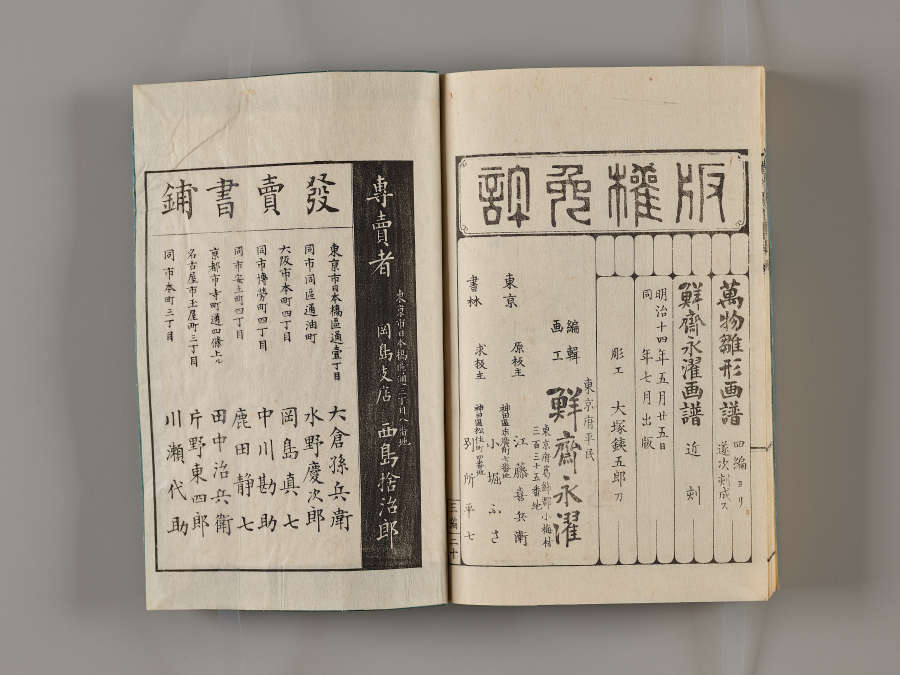 版權免許
萬物雛形画譜 四編ヨリ逐次刻成ス
鮮齋永濯画譜 近刻
明治十四年五月廿五日
同年七月出版
彫工 大塚鋑五郎刀
東京府平民
編輯画工 鮮齋永濯
東京府葛飾郡小梅村三百三十五番地
東京 原板主 江藤喜兵衛
小堀ふさ
書林 求板主 別所平七
三編 二十
專賣者 岡島支店 西島捨治郎
發賣書鋪
東京市日本橋區通壹丁目 大倉孫兵衛
同市同區通油町 水野慶次郎
大阪市本町四丁目 岡島真七
同市博勞町四丁目 中川勘助
同市安土町四丁目 鹿田静七
京都市寺町通四條上ル 田中治兵衛
名古屋市玉屋町三丁目 片野東四郎
同市本町三丁目 川瀬代助